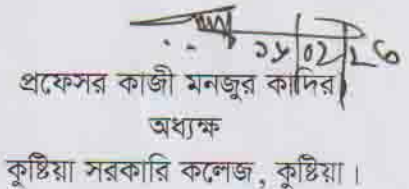 ২৮/০২/২৬
প্রফেসর কাজী মনজুর কাদির
অধ্যক্ষ
কুষ্টিয়া সরকারি কলেজ, কুষ্টিয়া।